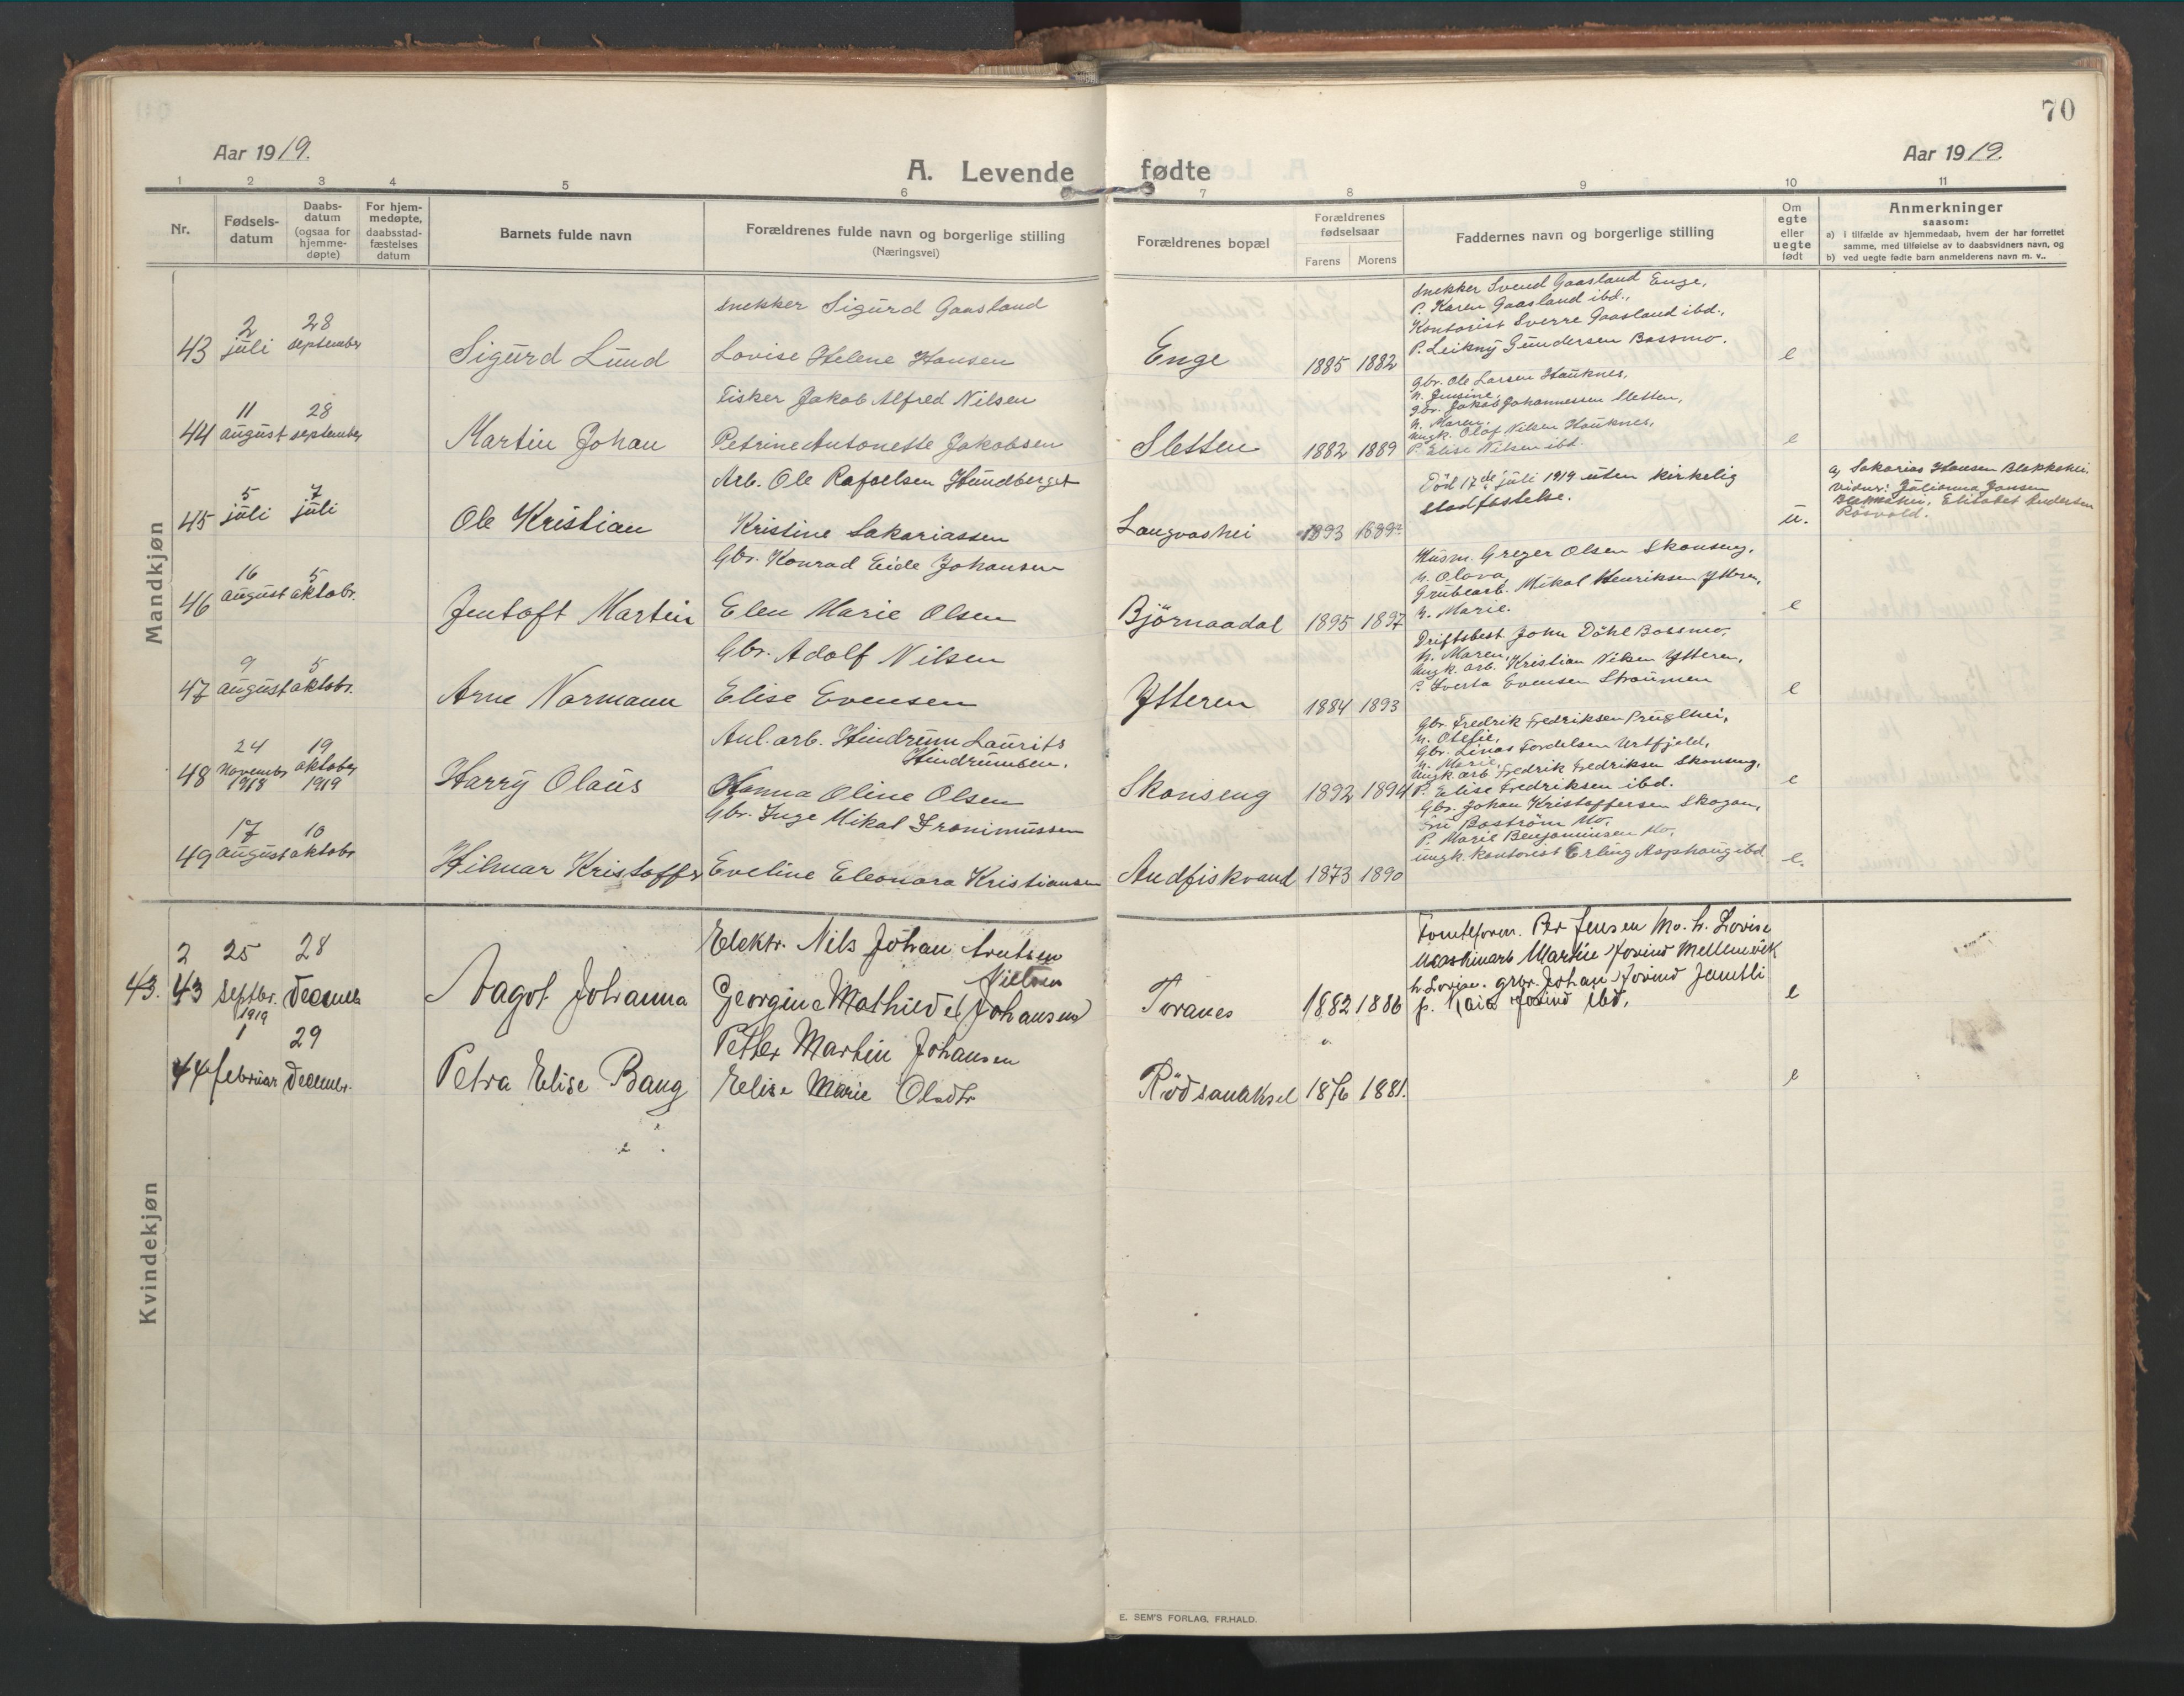 70
Aar 1919.
A. Levende fødte
Aar 1919.
1 2 3 4 5 6 7 8 9 10 11
Nr.
Fødsels-
datum
Daabs-
datum
(ogsaa for
hjemme-
døpte)
For hjem-
medøpte,
daabsstad-
fæstelses
datum
Barnets fulde navn
Forældrenes fulde navn og borgerlige stilling
(Næringsvei)
Forældrenes bopæl
Forældrenes
fødselsaar
Farens Morens
Faddernes navn og borgerlige stilling
Om
egte
eller
uegte
født
Anmerkninger
saasom:
a) i tilfælde av hjemmedaab, hvem der har forrettet
samme, med tilføielse av to daabsvidners navn, og
b) ved uegte fødte barn anmelderens navn m. v..
Mandkjøn
43
2
juli
28
september
Sigurd Lund
Snekker Sigurd Gaasland
Lovise Helene Hansen
Enge
1885 1882
Snekker Svend Gaasland Enge,
P. Karen Gaasland ibd.,
Kontorist Sverre Gaasland ibd.,
P. Leikny Gundersen Bossmo.
e
44
11
august
28
september
Martin Johan
Fisker Jakob Alfred Nilsen
Petrine Antonette Jakobsen
Sletten
1882 1889
Gbr. Ole Larsen Hauknes,
h. Jensine,
Gbr. Jakob Johannessen Sletten,
h. Maren,
Ungk. Olaf Nilsen Hauknes,
P. Elise Nilsen ibd.
e
45
5
juli
7
juli
Ole Kristian
Arb. Ole Rafaelsen Hundberget
Kristine Sakariassen
Langvashei
1893 1889
Död 17de juli 1919 uten kirkelig
stadfestelse.
u.
a, Sakarias Hansen Blakkshei
Vidner: Julianna Jansen
Elisabet Andersen
Røsvold.
46
16
august
5
oktobr.
Jentoft Martin
Gbr. Konrad Eide Johansen
Elen Marie Olsen
Björnaadal
1895 1897
Husm. Greger Olsen Skonseng,
h. Olava,
Grubearb. Mikal Henriksen Ytteren,
h. Marie.
e
47
9
august
5
oktobr.
Arne Normann
Gbr. Adolf Nilsen
Elise Evensen
Ytteren
1884 1893
Driftsbest. John Döhl Bossmo,
h. Maren,
Ungk. arb. Kristian Nilsen Ytteren,
P. Sverta Evensen Straumen
e
48
24
Novembr
1918
19
oktober
1919
Harry Olaus
Anl. arb. Hindrum Laurits
Hindrumsen.
Hanna Oline Olsen
Skonseng
1892 1894
Gbr. Fredrik Fredriksen Pruglhei,
h. Otelie,
Gbr. Linas Tordelsen Urtfjeld,
h. Marie,
Ungk. arb Fredrik Fredriksen Skonseng,
P. Elise Fredriksen ibd.
e
49
17
august
10
oktobr
Hilmar Kristoffer
Gbr. Inge Mikal Fronimussen
Eveline Eleonora Kristiansen
Andfiskvand
1873 1890
Gbr. Johan Kristoffersen Skogan,
Fru Boström Mo,
P. Marie Benjaminsen Mo,
ungk. kontorist Erling Asphaug ibd.
e.
Kvindekjøn
43.
2
43
25
Septbr.
1919
28
Decemb
Aagot Johanna
Elektr. Nils Johan Arntsen
Georgine Mathilde Johansen
Toranes
1882 1886
Tomteform. Per Jensen Mo. h. Lovise
Maskinarb Martin Josind Mellemvik
h. Lovise. grbr. Johan Josind Jamtli
p. Kaia Josind ibd.
e
44
1
februar
29
Decembr.
Petra Elise Bang
Petter Martin Johansen
Elise Marie Olsdtr
Rödsanaksel
1876 1881.
e
E. SEM'S FORLAG, FR.HALD.